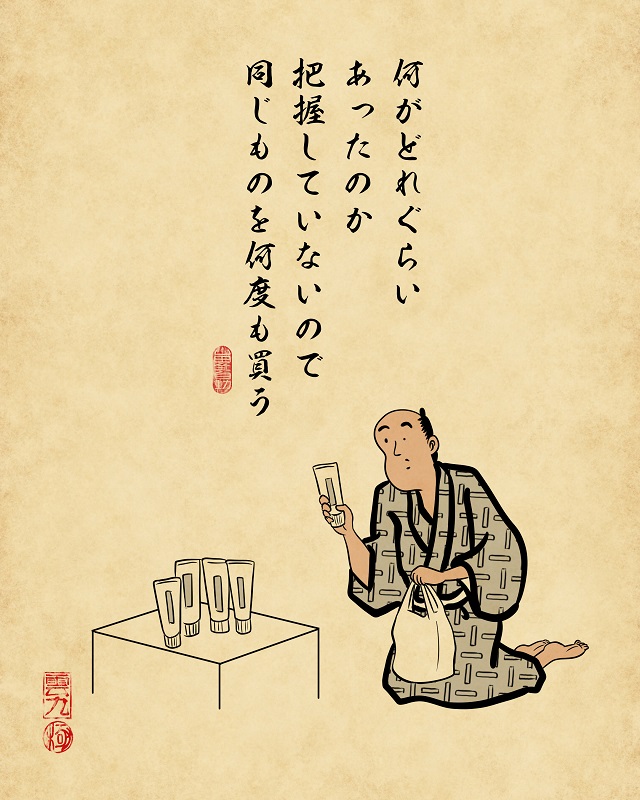 何がどれぐらい
あったのか
把握していないので
同じものを何度も買う